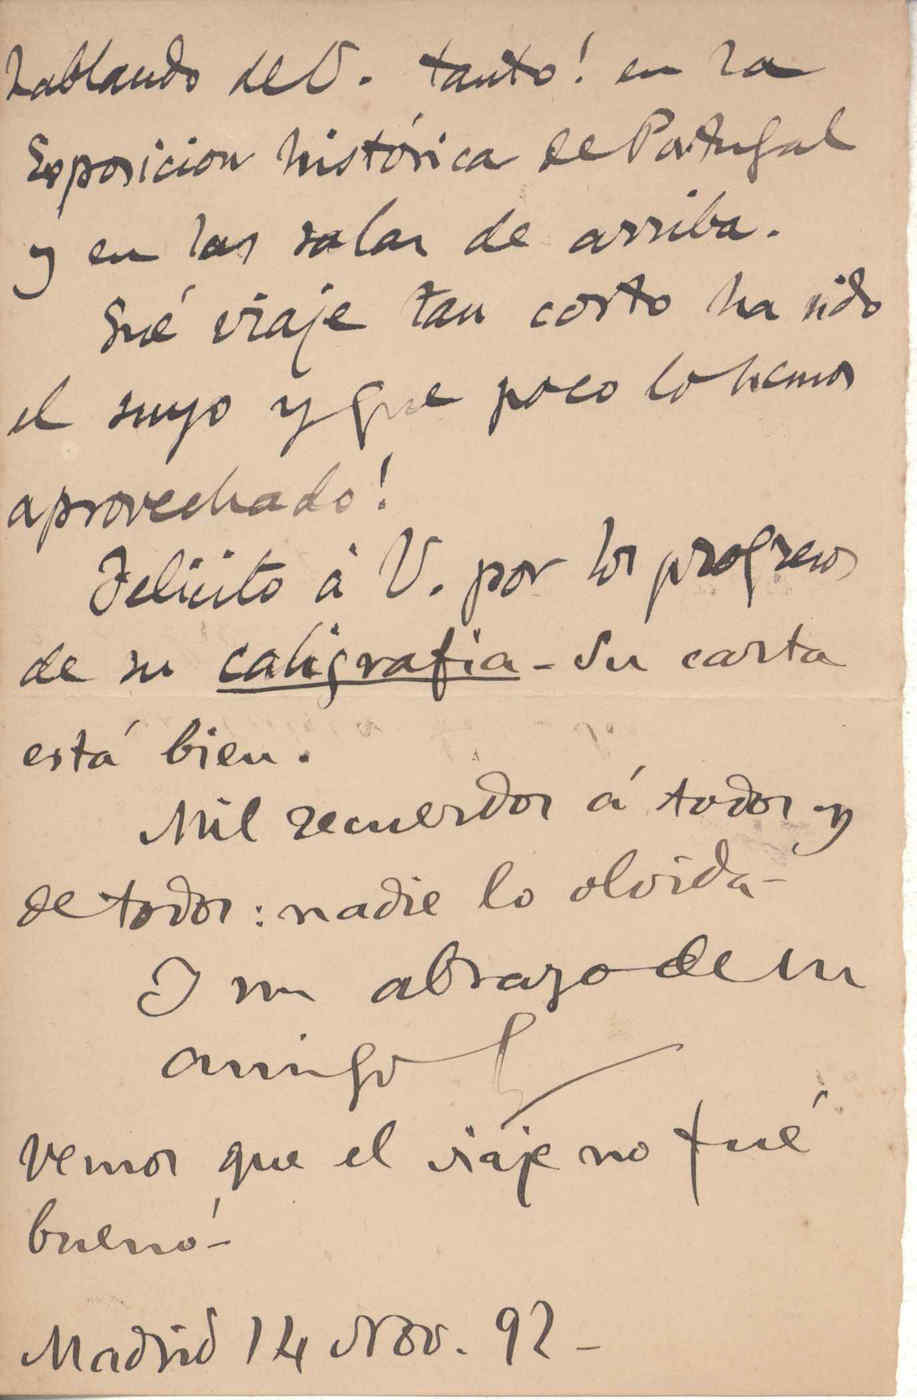 hablando de V. tanto! en la
Esposicion histórica de Portugal
y en las salas de arriba.
Qué viaje tan corto ha sido
el suyo y que poco lo hemos
aprovechado!
Felicito á V. por los progresos
de su caligrafia - Su carta
está bien.
Mil recuerdos á todos y
de todos: nadie lo olvida -
Y un abrazo de su
amigo
Vemos que el viaje no fué
bueno -
Madrid 14 Nov. 92 -